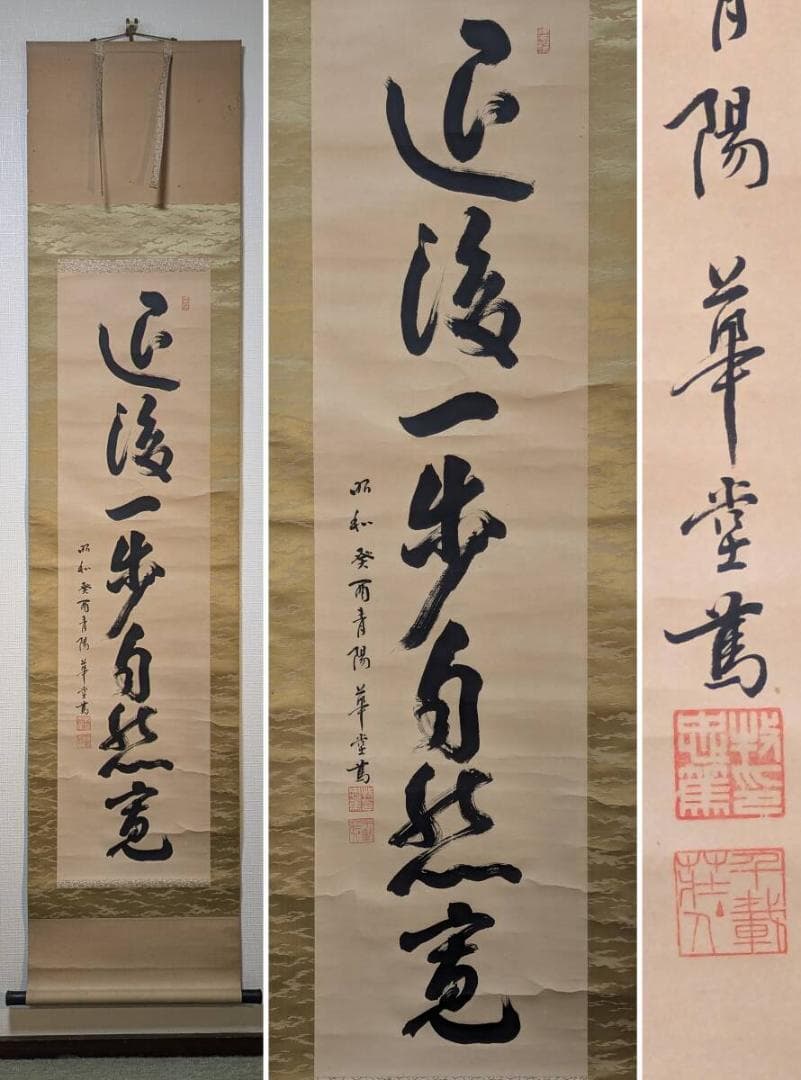 退後一步自然寛
昭和癸酉青陽 華堂篤
退後一步自然寛
昭和癸酉青陽 華堂篤
陽 華堂篤